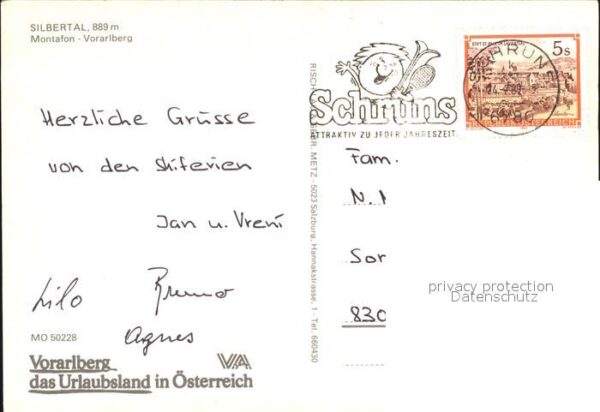 SILBERTAL, 889 m
Montafon - Vorarlberg
Herzliche Grüsse
von den Skiferien
Jan u. Vreni
Lilo Bruno
Agnes
MO 50228
Vorarlberg VA
das Urlaubsland in Österreich
METZ - 5023 Salzburg, Hannakstrasse. 1 - Tel. 660430
Schruns
ATTRAKTIV ZU JEDER JAHRESZEIT
5s
Fam.
N.
Sor
830
privacy protection
Datenschutz